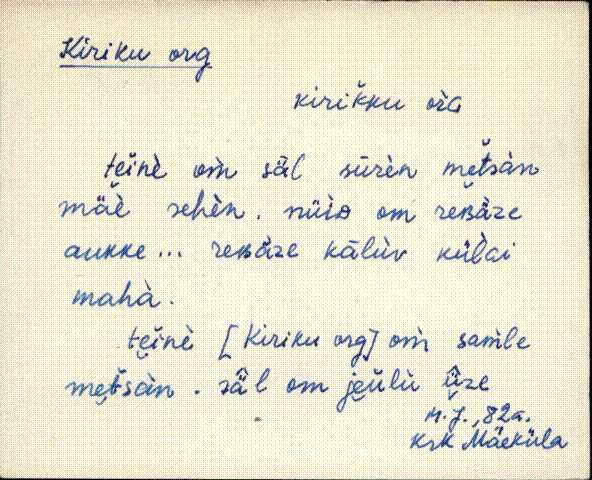 Kiriku org
kirikku orɢ
tei̭nè om̀ säl sūrèn metsàn
mäè sehèn. nüiᴅ om reʙàze
aukke... reʙàze kālùv külɢi
mahà.
tei̭nè [Kiriku org] om̀ sam̀le
metsàn. säl om jeùlù üze
M. J., 82a.
Krk Mäeküla